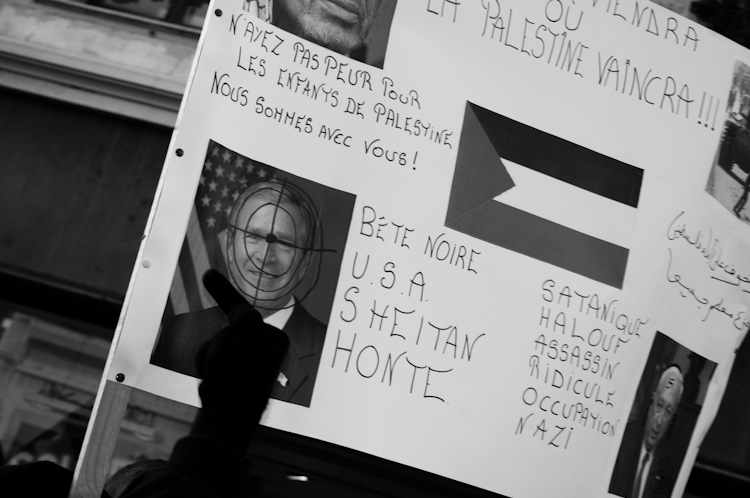 VIENDRA
OU
LA PALESTINE VAINCRA!!!
N'AYEZ PAS PEUR POUR
LES ENFANTS DE PALESTINE
NOUS SOMMES AVEC VOUS!
BÊTE NOIRE
U.S.A.
SHEITAN
HONTE
SATANIQUE
HALOUF
ASSASSIN
RIDICULE
OCCUPATION
NAZI